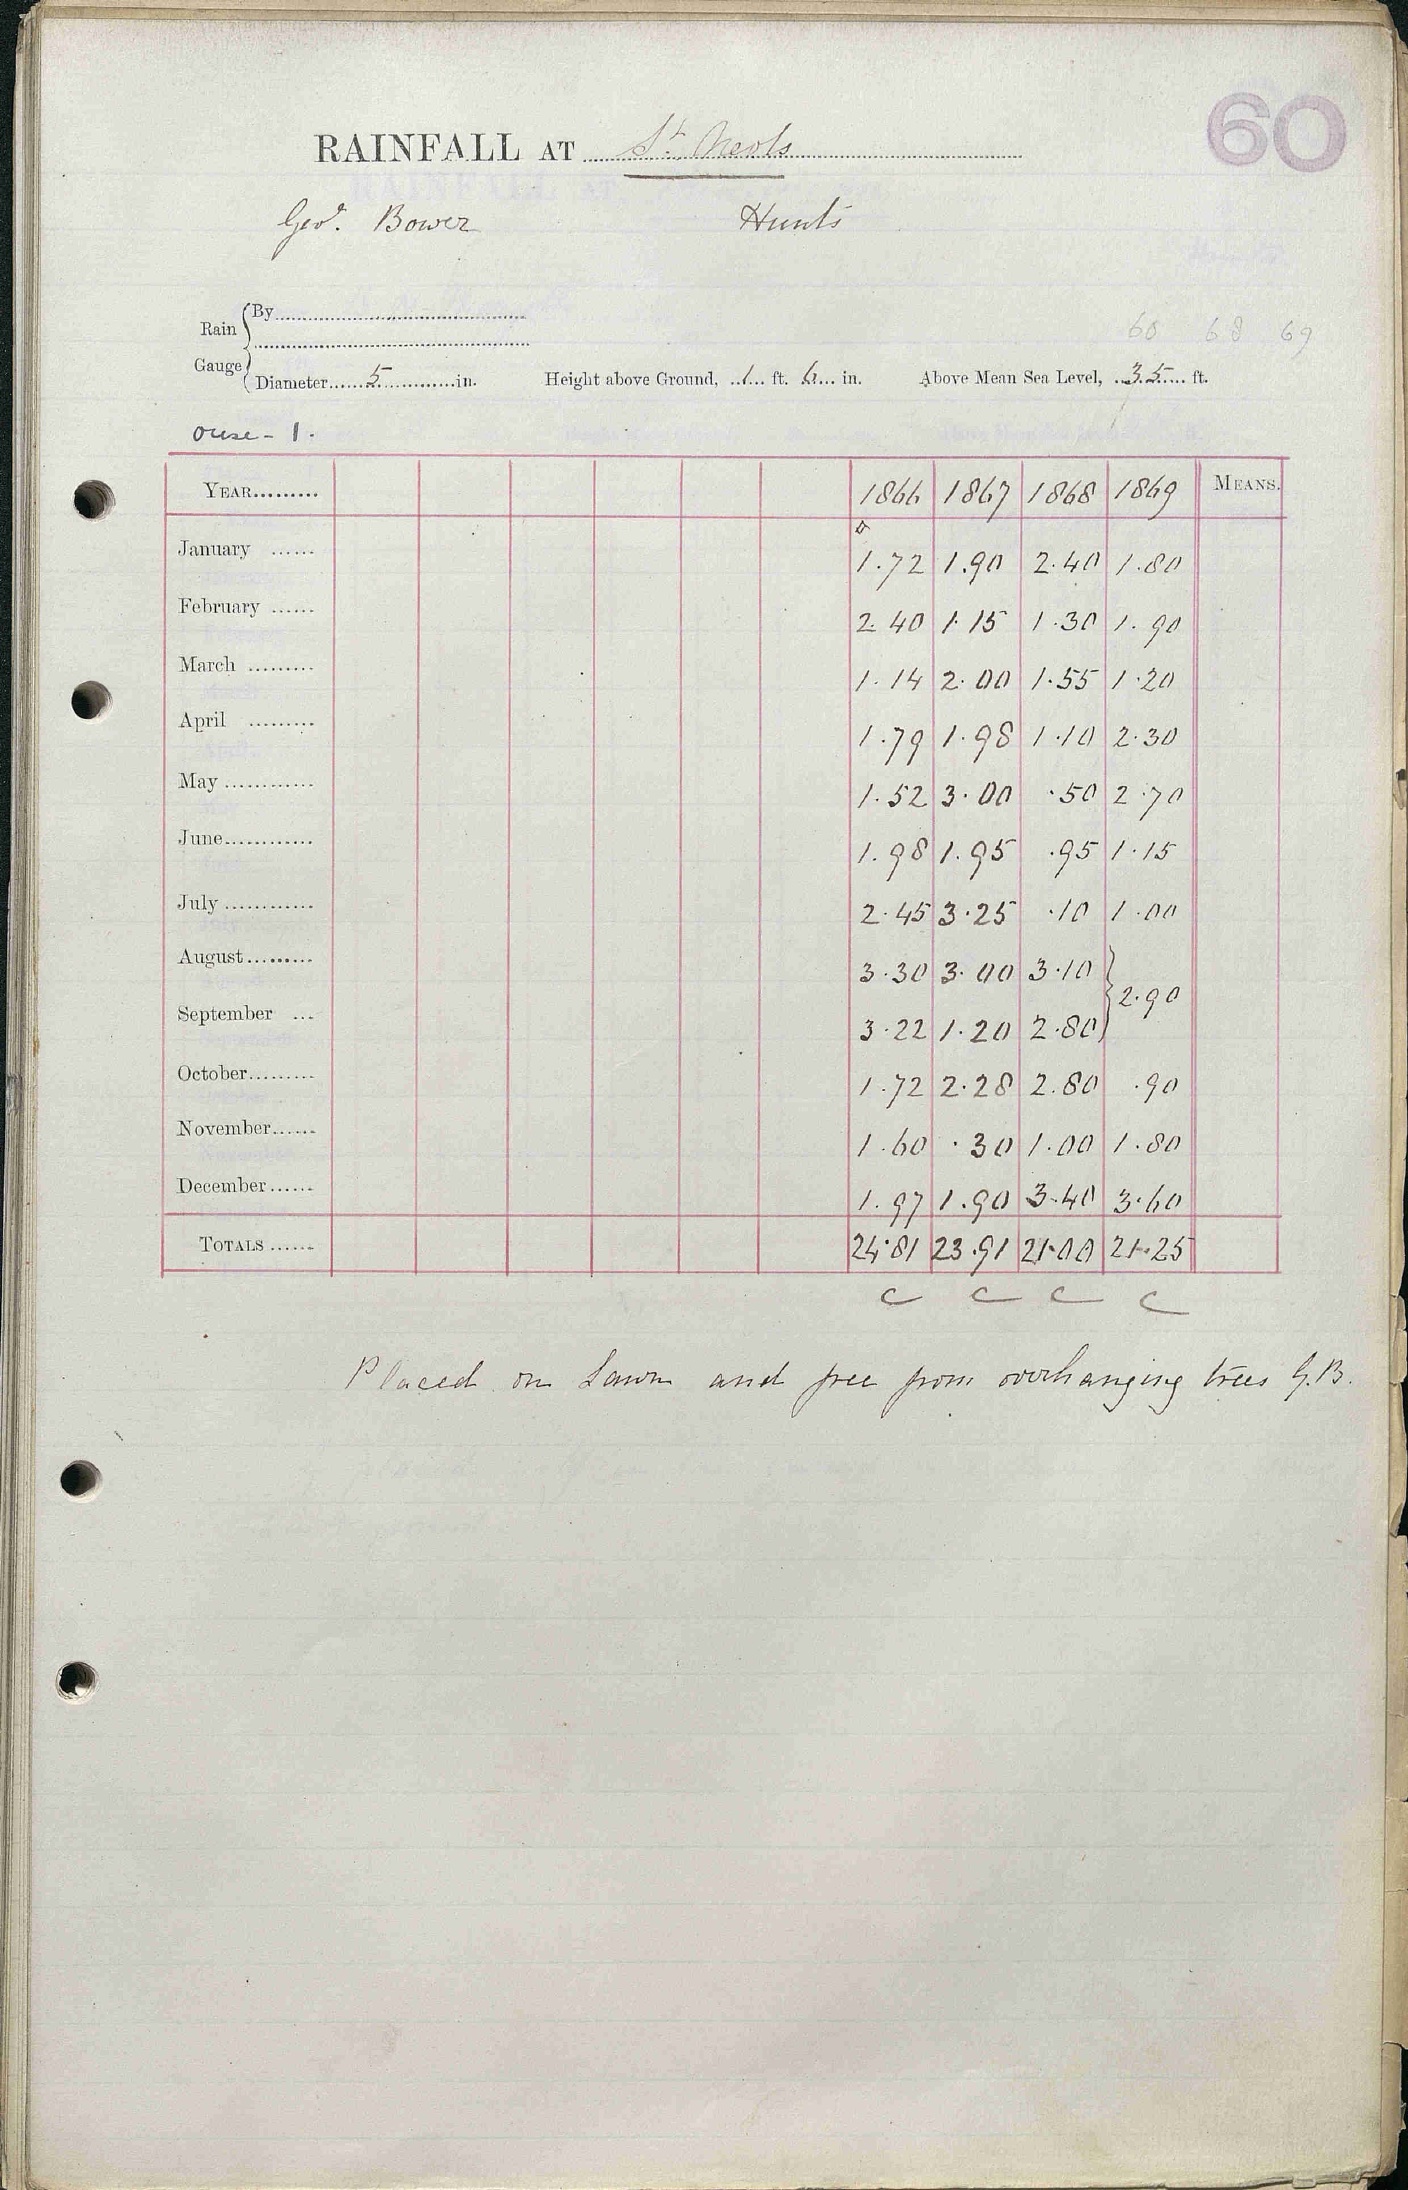 60
RAINFALL AT St. Neots
Geo. Bower Hunts
Rain Gauge
By
60 68 69
Diameter 5 in. Height above Ground, 1 ft. 6 in. Above Mean Sea Level, 35 ft.
Ouse - 1.
YEAR 1866 1867 1868 1869 MEANS.
January 1.72 1.90 2.40 1.80
February 2.40 1.15 1.30 1.90
March 1.14 2.00 1.55 1.20
April 1.79 1.98 1.10 2.30
May 1.52 3.00 .50 2.70
June 1.98 1.95 .95 1.15
July 2.45 3.25 .10 1.00
August 3.30 3.00 3.10
2.90
September 3.22 1.20 2.80
October 1.72 2.28 2.80 .90
November 1.60 .30 1.00 1.80
December 1.97 1.90 3.40 3.60
TOTALS 24.81 23.91 21.00 21.25
C C C C
Placed on Lawn and free from overhanging trees G.B.